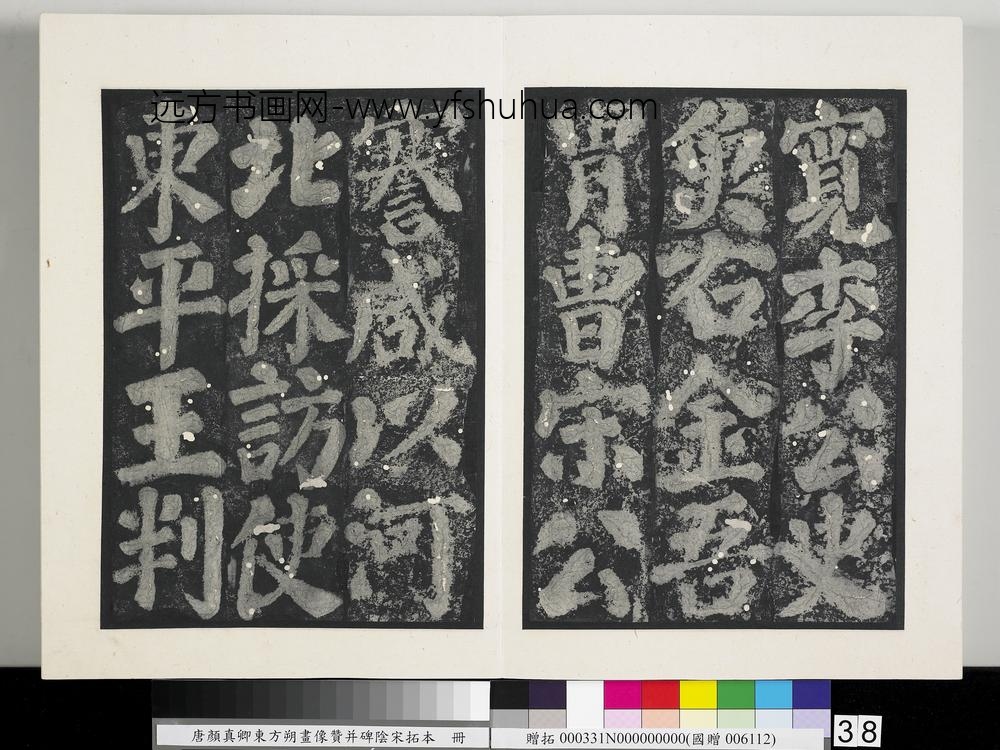 寬李公史
魚右金吾
胄曹宋公
謇咸以河
北採訪使
東平王判
远方书画网-www.yfshuhua.com
唐顏真卿東方朔畫像贊并碑陰宋拓本 冊
贈拓 000331N000000000(國贈 006112)
38